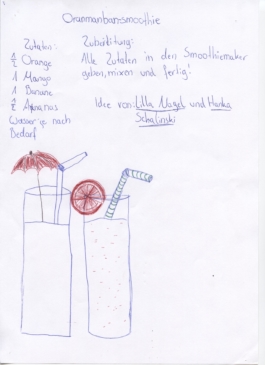 Oranmanbanasmoothie
Zutaten:
1/2 Orange
1 Mango
1 Banane
1/2 Ananas
Wasser je nach
Bedarf
Zubereitung:
Alle Zutaten in den Smoothiemaker
geben, mixen und fertig!
Idee von: Lilla Nagel und Hanka
Schalinski